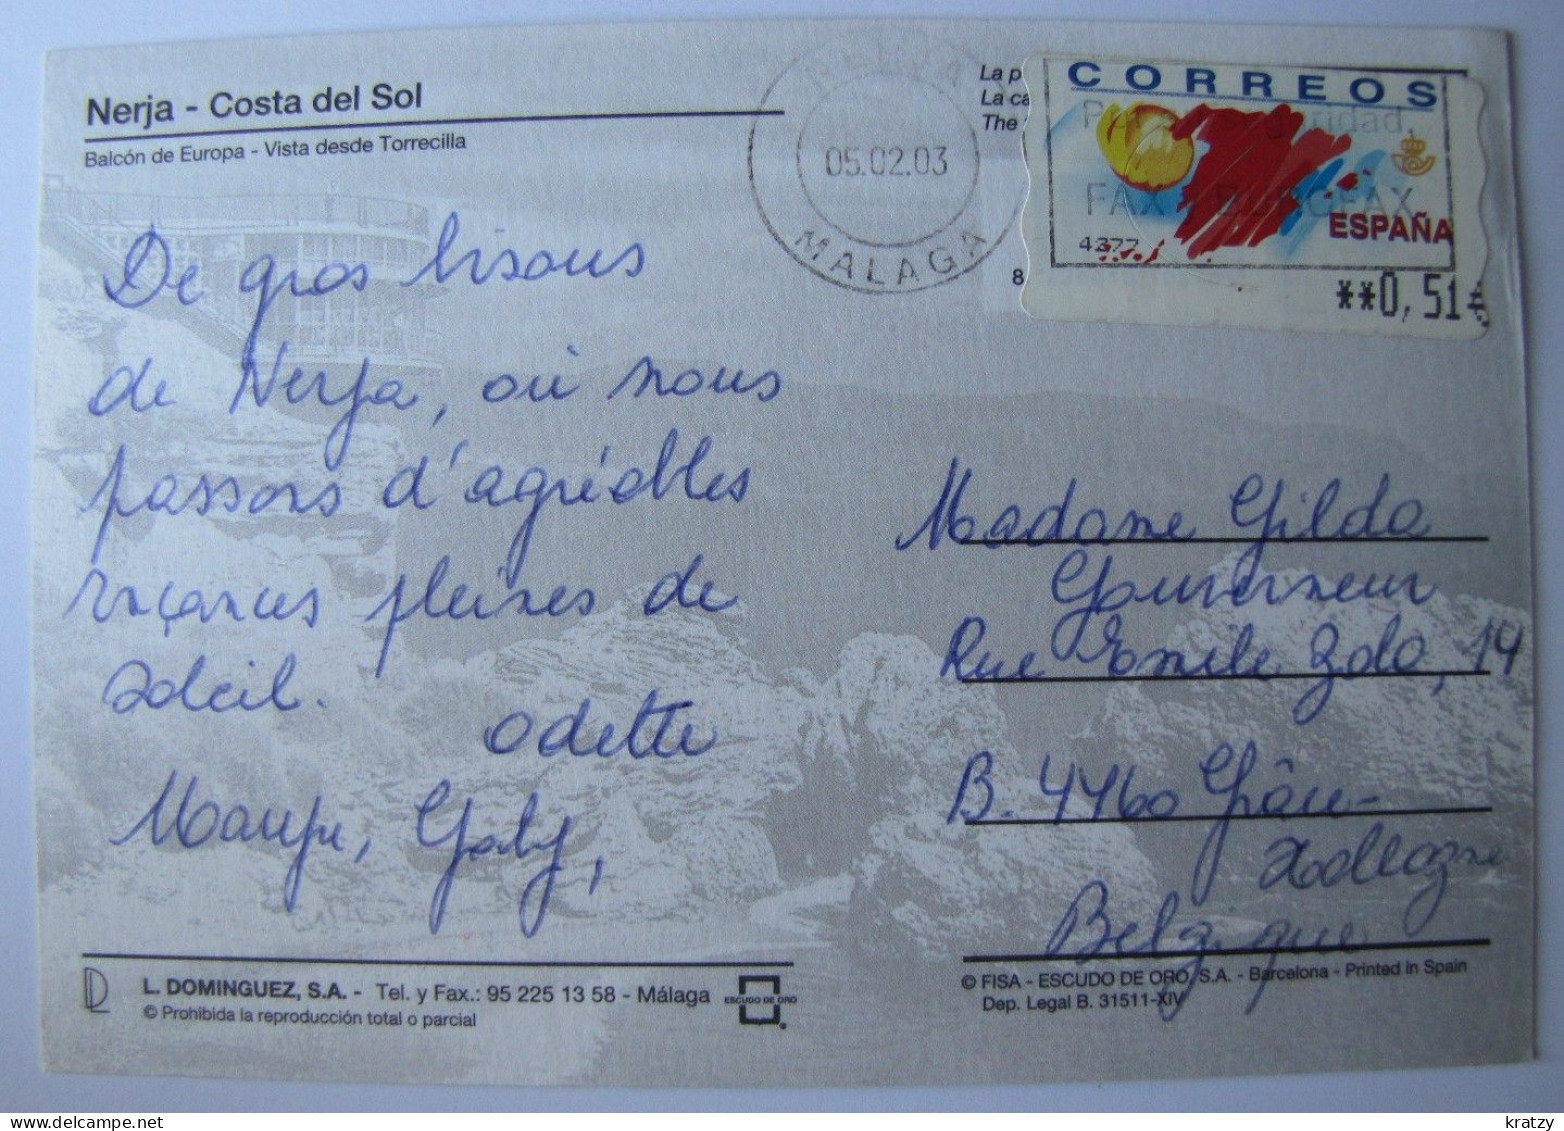 Nerja - Costa del Sol
Balcón de Europa - Vista desde Torrecilla
NERJA
05.02.03
MALAGA
La p
La ca
The
8
CORREOS
FAX
ESPAÑA
4377
**0,51€
De gros bisous
de Nerja, où nous
passons d'agréables
vaçances pleines de
soleil.
Odette
Gaby,
Madame Gilda
Gouverneur
Rue Emile Zola, 14
B. 4460 Grâce-
Hollogne
Belgique
L. DOMINGUEZ, S.A. - Tel. y Fax.: 95 225 13 58 - Málaga
© Prohibida la reproducción total o parcial
ESCUDO DE ORO
© FISA - ESCUDO DE ORO, S.A. - Barcelona - Printed in Spain
Dep. Legal B. 31511-XIV
www.delcampe.net
kratzy